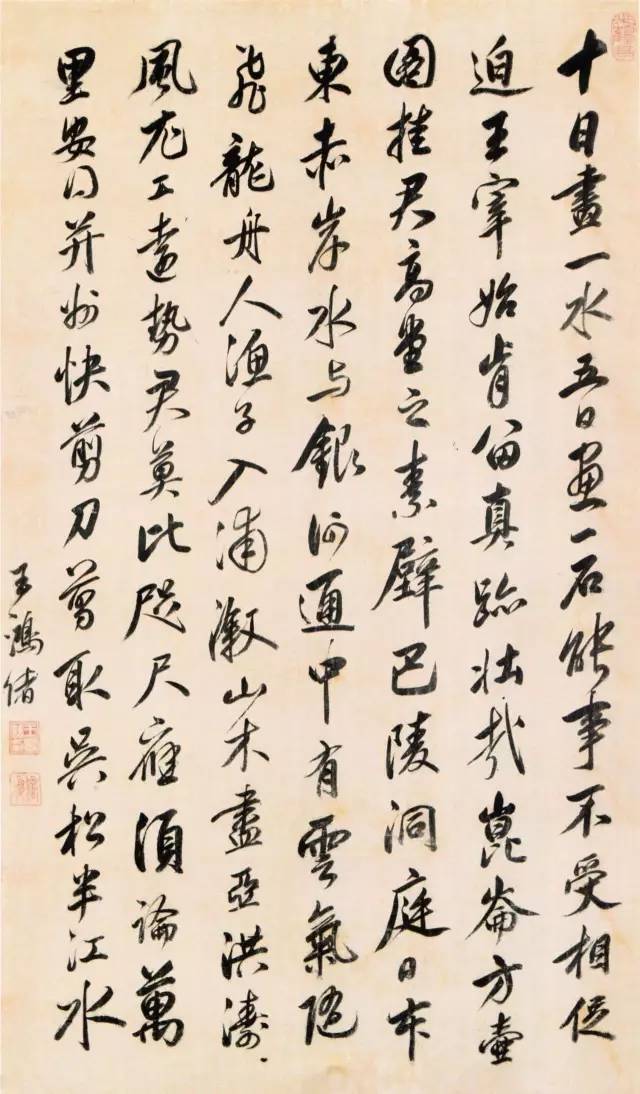 十日畫一水五日畫一石能事不受相促
迫王宰始肯留真跡壯哉崑崙方壺
圖挂君高堂之素壁巴陵洞庭日本
東赤岸水与銀河通中有雲氣隨
飛龍舟人漁子入浦漵山木盡亞洪濤
風尤工遠勢君莫比咫尺應須論萬
里安得并州快剪刀剪取吳松半江水
王鴻緒